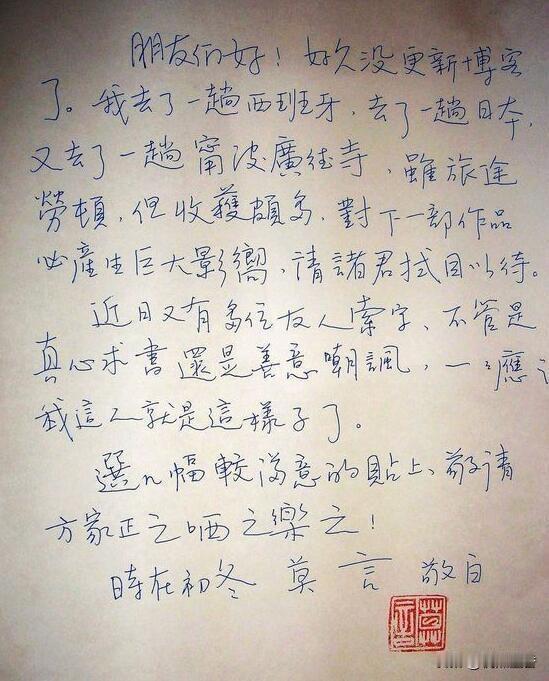 朋友们好！好久没更新博客
了。我去了一趟西班牙，去了一趟日本，
又去了一趟甯波廣德寺，雖旅途
勞頓，但收獲頗多，對下一部作品
必產生巨大影嚮，請諸君拭目以待。
近日又有多位友人索字、不管是
真心求書還是善意嘲諷，一一應
我這人就是這樣子了。
選幾幅較滿意的貼上、敬請
方家正之哂之樂之！
時在初冬 莫言 敬白